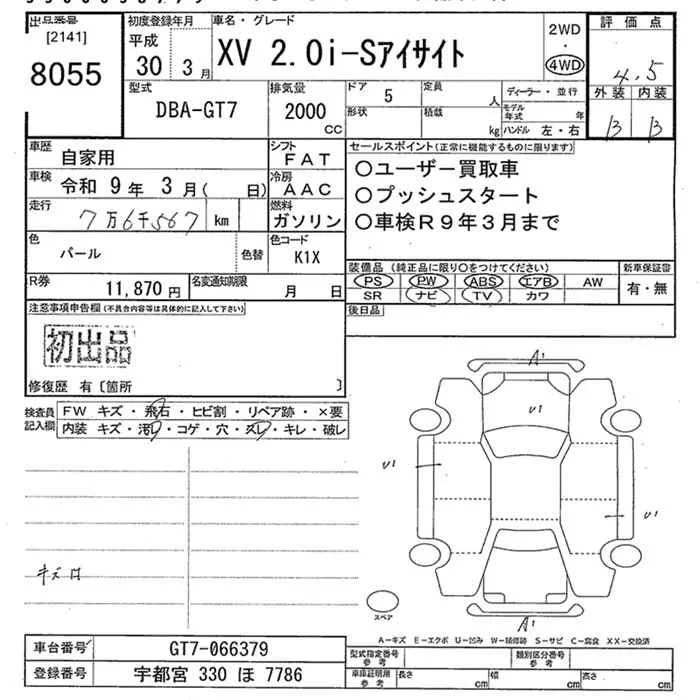 出品番号
[2141]
8055
初度登録年月
平成
30 3 月
車名・グレード
XV 2.0i-Sアイサイト
2WD
・
4WD
評価点
4.5
外装 内装
B B
型式
DBA-GT7
排気量
2000
CC
ドア 5
形状
定員 人
積載 kg
ディーラー・並行
モデル年式 年
ハンドル 左・右
車歴 自家用
シフト FAT
車検 令和 9 年 3 月( 日)
冷房 AAC
走行 7万6千567 km
燃料 ガソリン
色 パール 色替
色コード K1X
R券 11,870 円
名変通知期限 月 日
セールスポイント(正常に機能するものに限ります)
○ユーザー買取車
○プッシュスタート
○車検R9年3月まで
装備品 (純正品に限り○をつけてください)
PS PW ABS エアB AW
SR ナビ TV カワ
新車保証書
有・無
後日品
注意事項申告欄(不具合内容等は具体的に記入して下さい)
初出品
修復歴 有〔箇所 〕
検査員記入欄
FW キズ・飛石・ヒビ割・リペア跡・×要
内装 キズ・汚レ・コゲ・穴・スレ・キレ・破レ
A1
U1
U1
U1
A1
スペア
A-キズ E-エクボ U-凹み W-補修跡 S-サビ C-腐食 XX-交換済
車台番号 GT7-066379
登録番号 宇都宮 330 ほ 7786
型式指定番号
参考
類別区分番号
参考
車庫証明用
参考
長さ cm
幅 cm
高さ cm